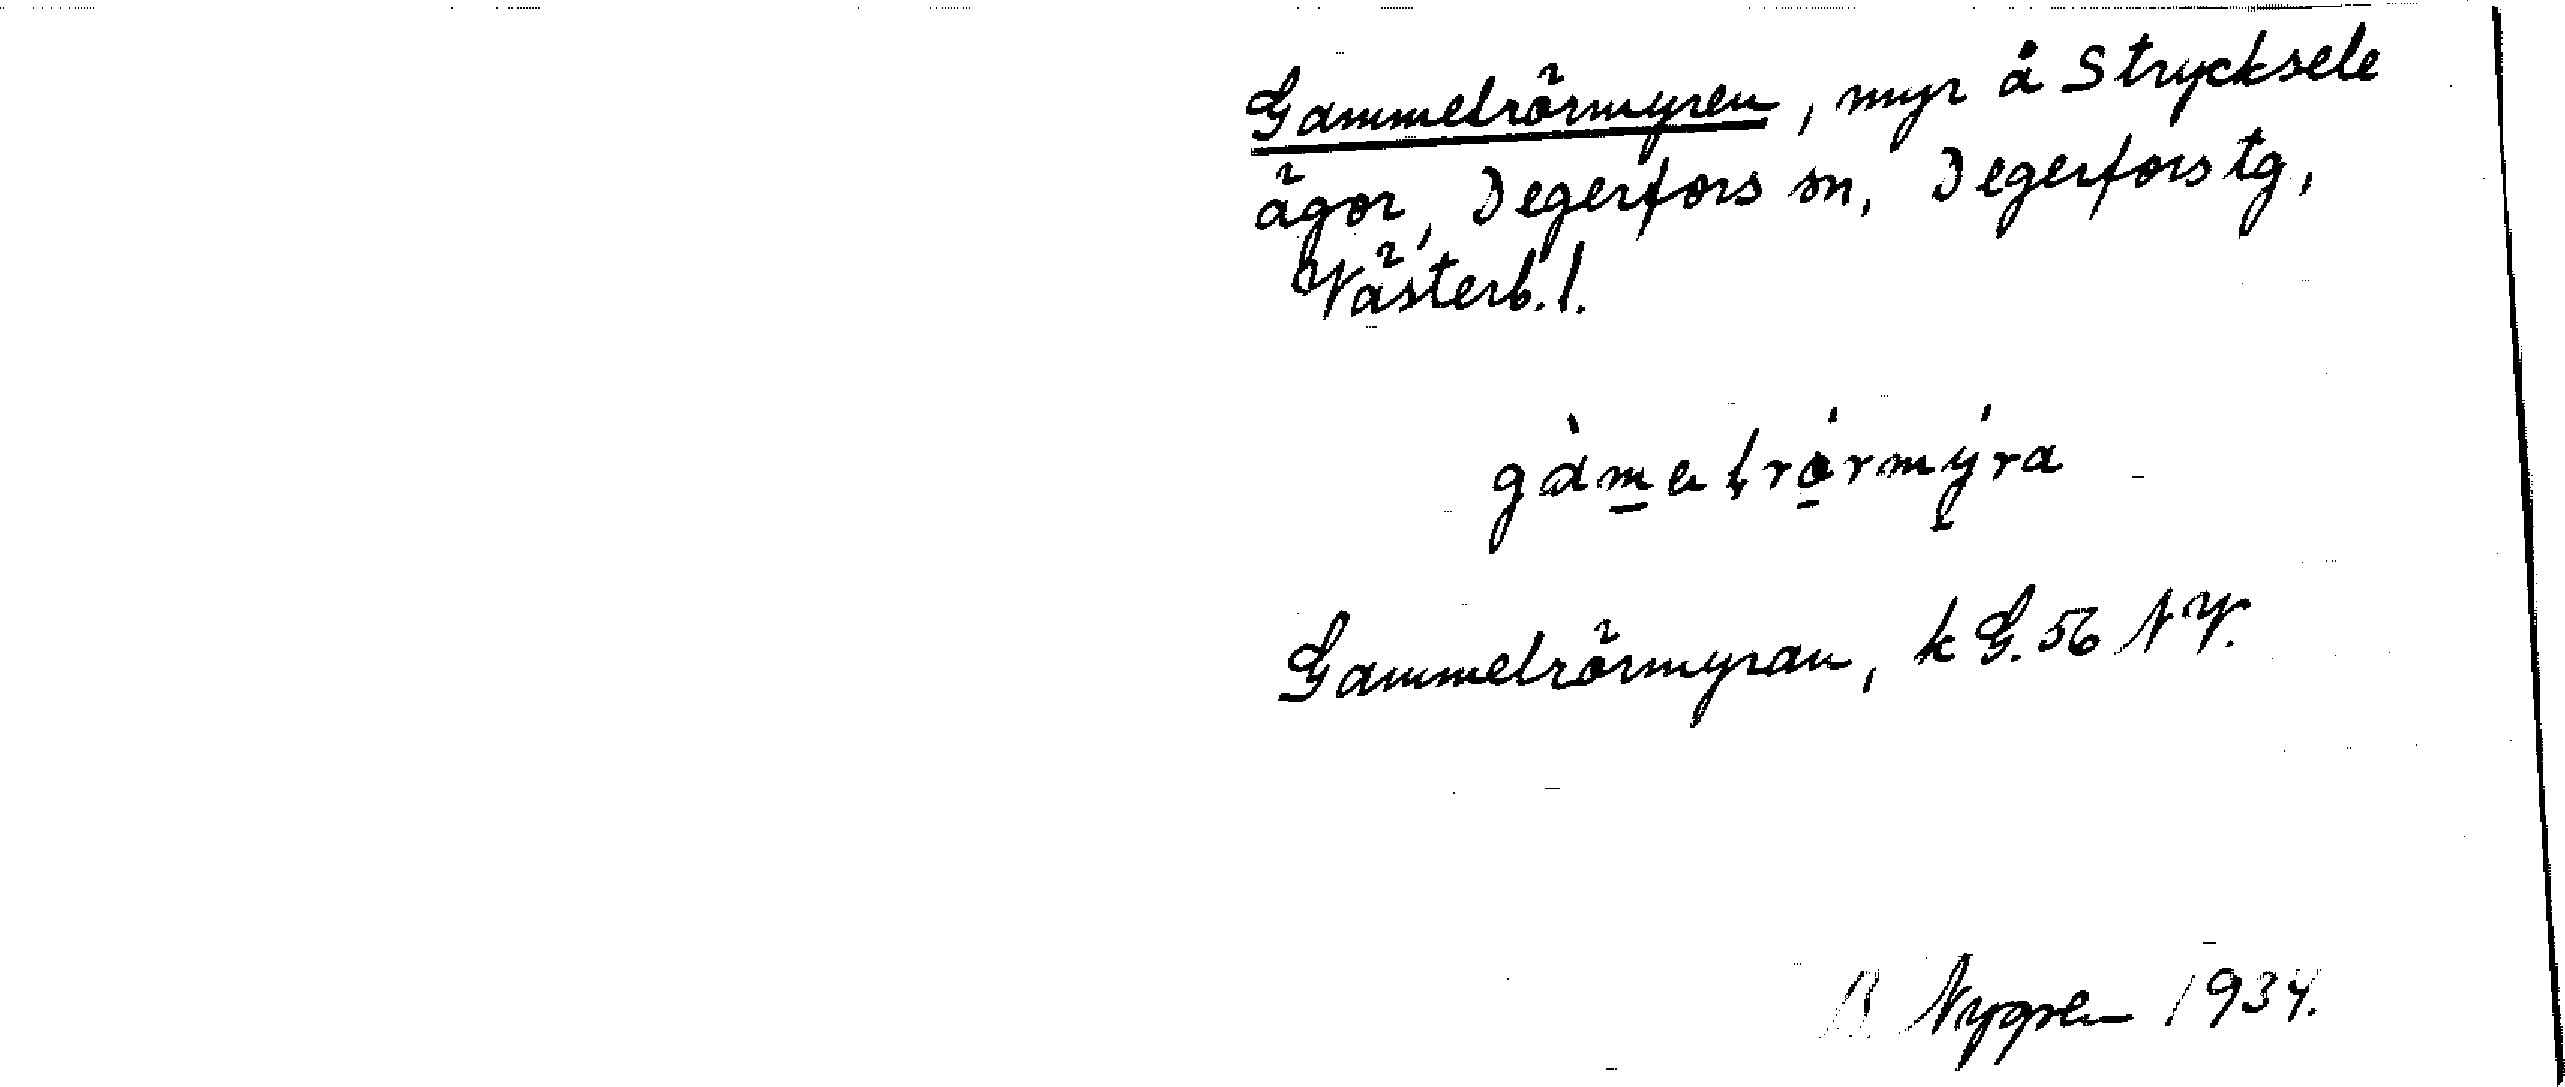 Gammelrörmyren, myr å Strycksele
ägor, Degerfors sn, Degerfors tg,
Västerb. l.
gàmelrórmýra
Gammelrörmyran, k G. 56 NV.
B. Nygren 1934.